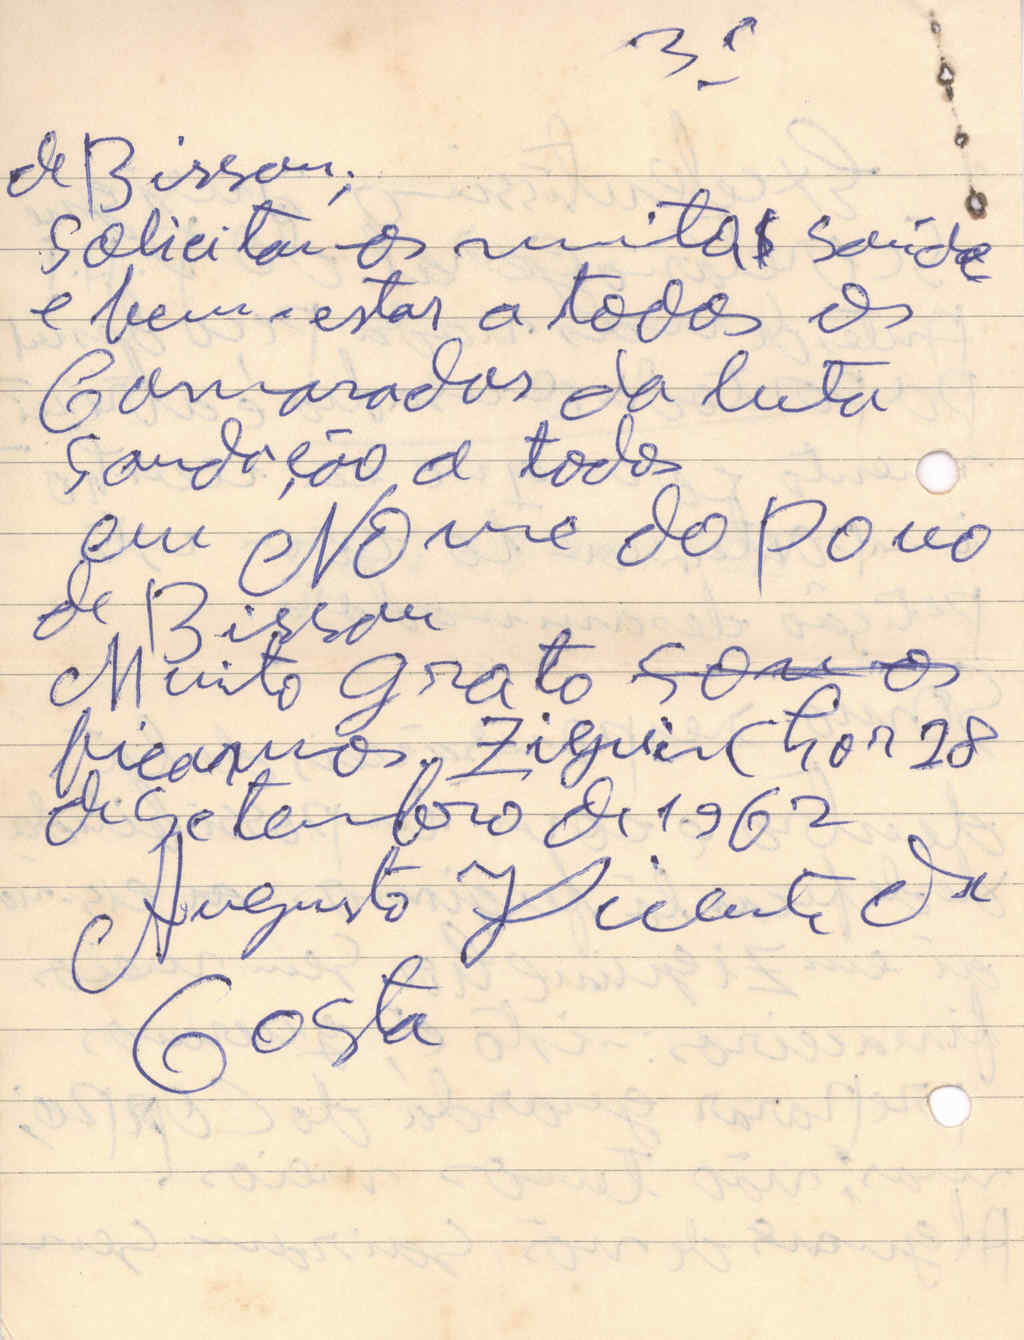 3º
de Bissau;
Solicitamos muita saúde
e bem-estar a todos os
Camaradas da luta
Saudação a todos
em Nome do Povo
de Bissau
Muito grato somos
ficamos. Ziguinchor 28
de Setembro de 1962
Augusto Vicente da
Costa